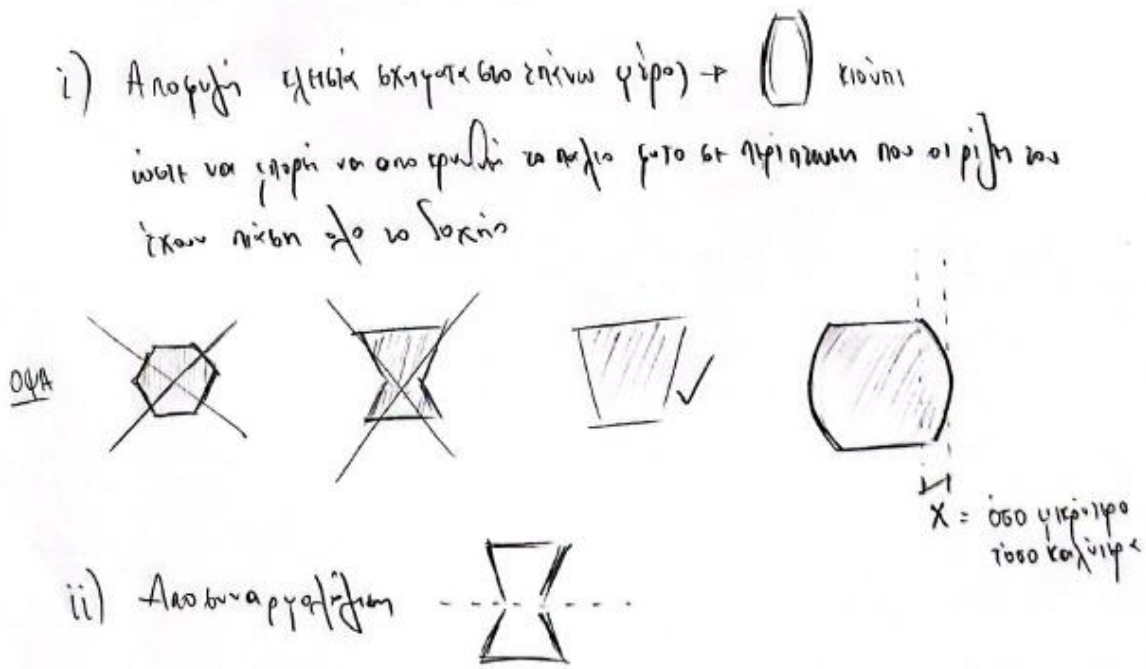 i) Αποφυγή κλειστά σχήματα στο επάνω μέρος → κιούπι
ώστε να μπορή να απο κρυνθή το παλιο φυτο σε περίπτωση που οι ρίζη του
έχουν πιάση όλο το δοχήο
ΟΨΗ
X = όσο μικρότερο
τόσο καλύτερα
ii) Αποσυναρμολόγηση